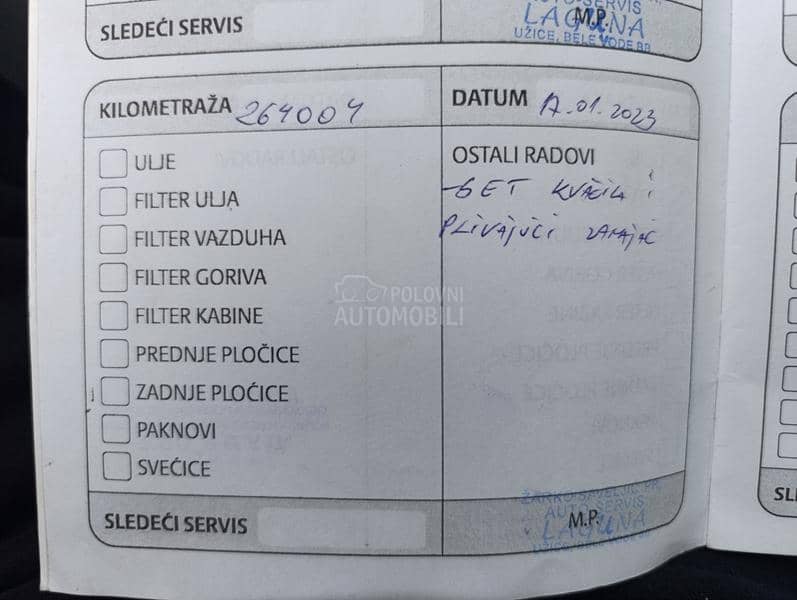 AUTO SERVIS
SLEDEĆI SERVIS
M.P.
LAGUNA
UŽICE, BELE VODE BB
KILOMETRAŽA 264004
DATUM 17.01.2023
ULJE
OSTALI RADOVI
FILTER ULJA
-SET KVAČILA i
FILTER VAZDUHA
PLIVAJUĆI ZAMAJAC
FILTER GORIVA
POLOVNI
AUTOMOBILI
FILTER KABINE
PREDNJE PLOČICE
ZADNJE PLOČICE
PAKNOVI
SVEĆICE
AUTO SERVIS
SLEDEĆI SERVIS
M.P.
LAGUNA
UŽICE, BELE VODE BB
SL